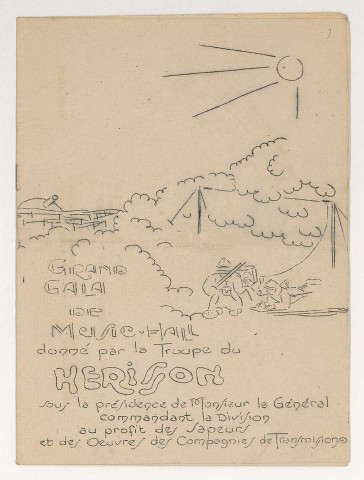 1
GRAND
GALA
DE
MUSIC-HALL
donné par la Troupe du
HERISSON
sous la présidence de Monsieur le Général
commandant la Division
au profit des Sapeurs
et des Oeuvres des Compagnies de Transmissions